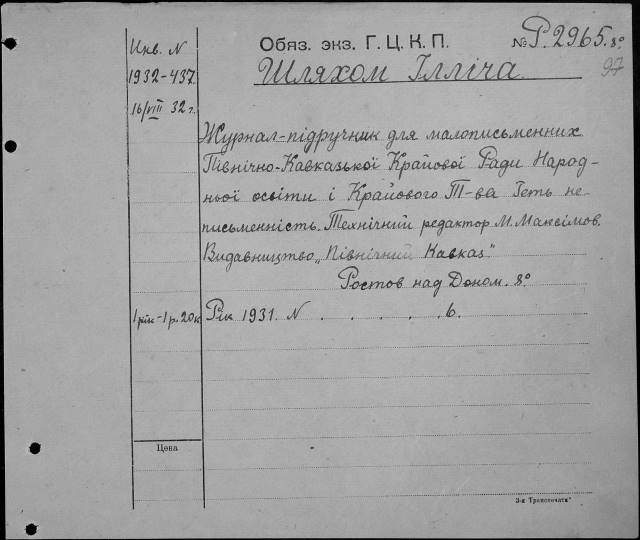 Инв. N
Обяз. экз. Г. Ц. К. П.
№ Р. 2965. 8°
97
1932-437
Шляхом Ілліча
16/VIII 32 г.
Журнал-підручник для малописьменних
Північно-Кавказької Крайової Ради Народ-
ньої освіти і Крайового Т-ва Геть не-
письменність. Технічний редактор М. Максімов.
Видавництво „Північний Кавказ".
Ростов над Доном. 8°
1 рік-1 р. 20 к
Рік 1931. N . . . . . 6.
Цена
3-я Транспечать"